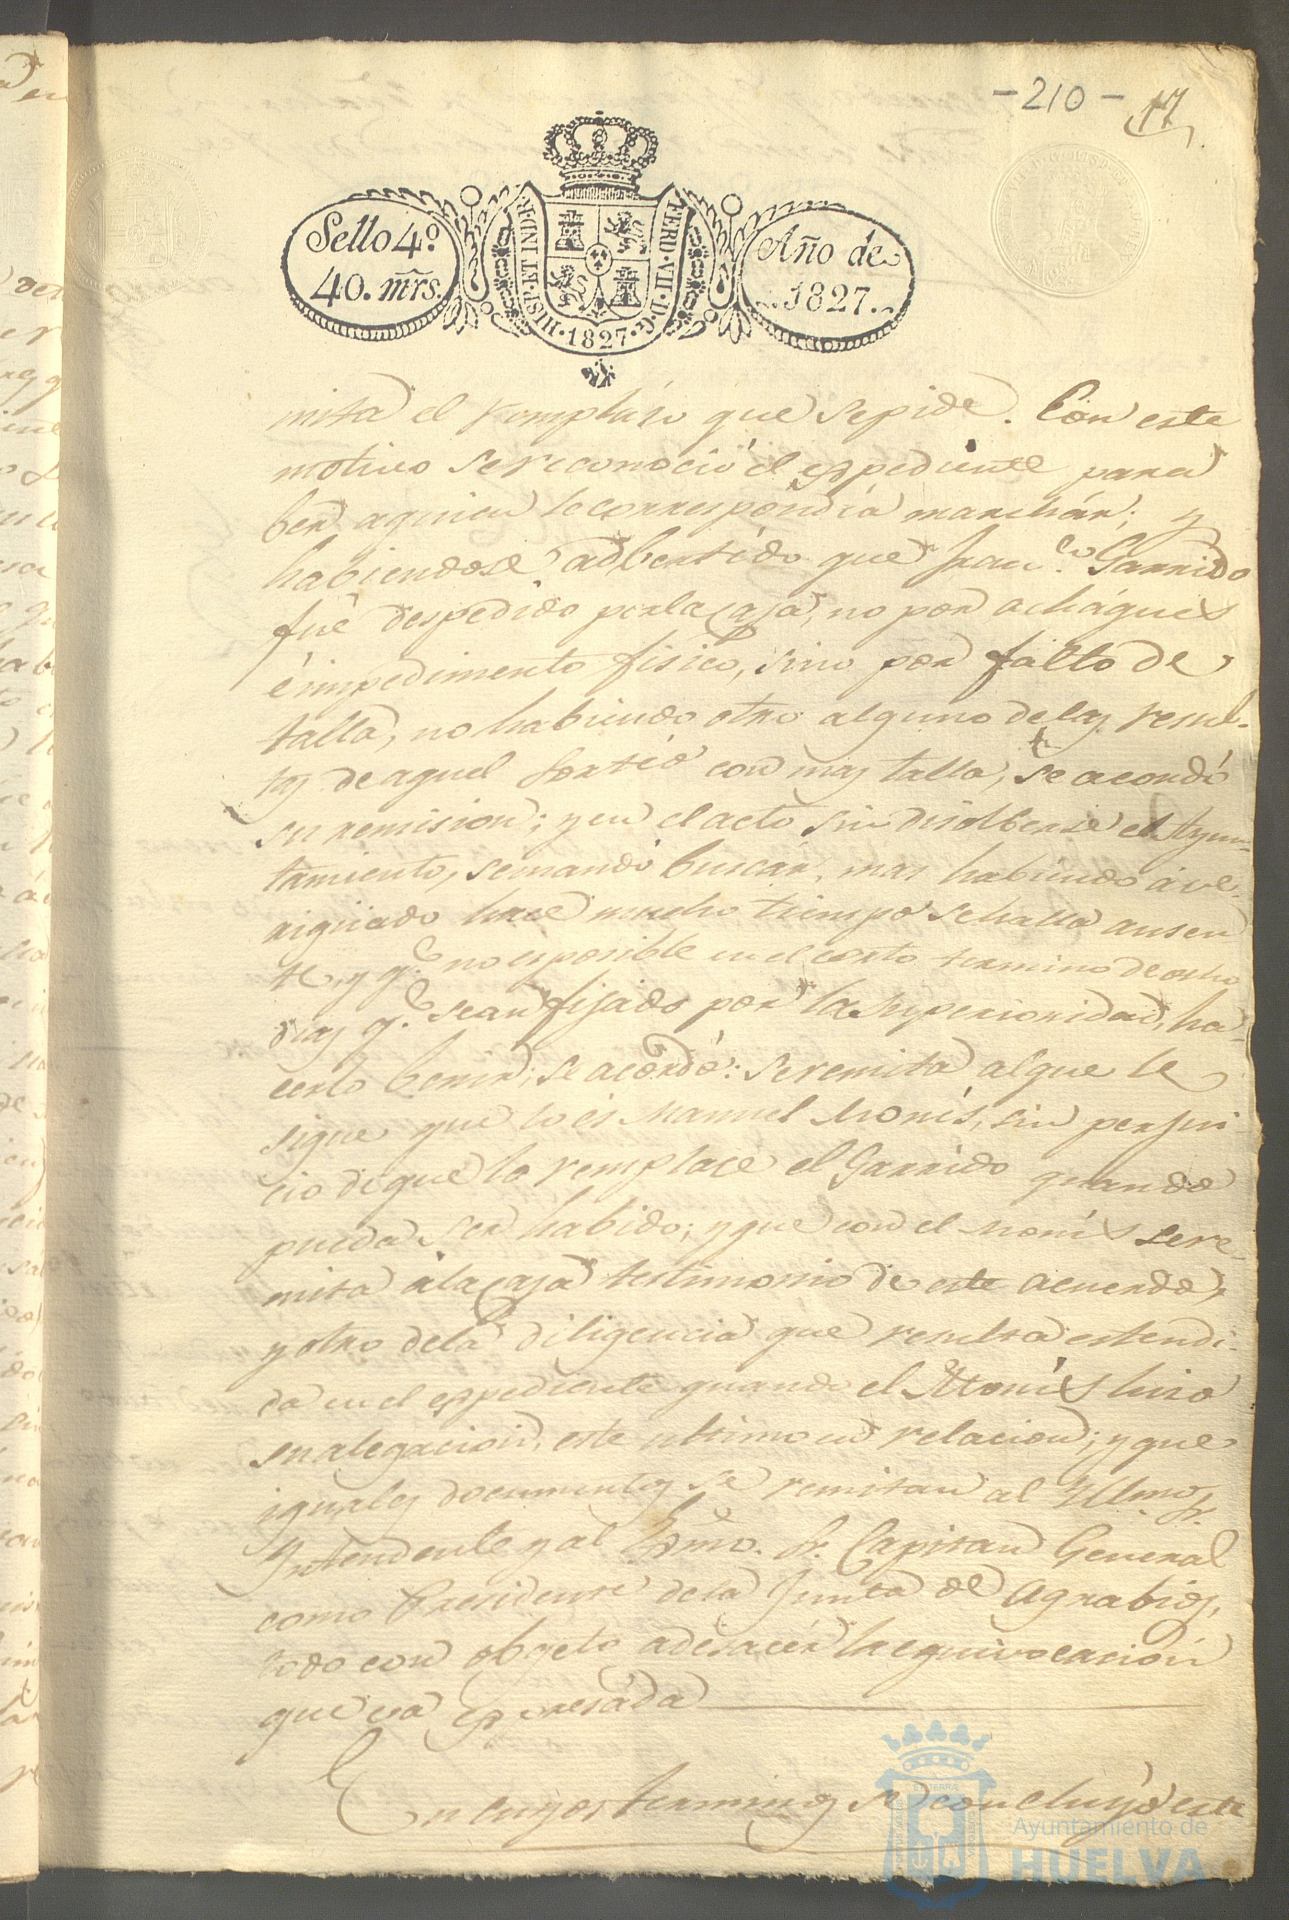 - 210 - 17
Sello 4º
40. mrs.
HISP. ET IND. R.
FERD. VII. D. G.
1827
Año de
1827.
mita el remplázo que se pide. Con este
motivo se reconoció el espediente para
ber aquien le correspondia marchár; y
habiendose adbertido que Fran.co Garrido
fué despedido por la Caja, no por acháques
é impedimento fisico, sino por falto de
talla, no habiendo otro alguno de las resul-
tas de aquel sortéo con mas talla, se acordó
su remision; y en el acto sin disolberse el Ayun-
tamiento, se mandó buscár, mas habiendo ave-
rigüado hace mucho tiempo se halla ausen
te, y q.e no es posible en el corto termino de ocho
dias q.e sean fijado por la Superioridad, ha-
cerlo benir; se acordó: Se remita al que le
sigue que lo és Manuel Monís, sin perjui
cio de que lo remplace el Garrido quando
pueda ser habido; y que con el Monís se re
mita a la Caja testimonio de este acuerdo,
y otro de la diligencia que resulta estendi-
da en el espediente quando el Monís hizo
su alegacion, este ultimo en relacion; y que
iguales documentos se remitan al Yllmo. Sr.
Yntendente y al Exmo. Sr. Capitan General
como Presidente de la Junta de Agrabios,
todo con objeto a desacér la equivocación
que va espresáda
En cuyos terminos se concluyó este
Ayuntamiento de
HUELVA